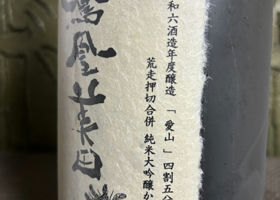 鳳凰美田
和六酒造年度醸造 「愛山」四割五分
荒走押切合併 純米大吟醸か